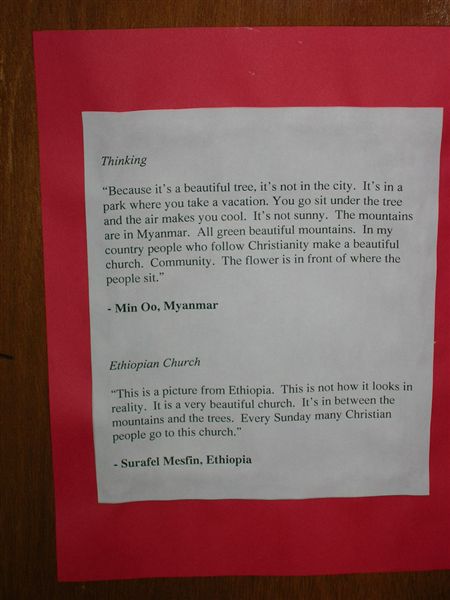 Thinking
“Because it’s a beautiful tree, it’s not in the city.  It’s in a
park where you take a vacation. You go sit under the tree
and the air makes you cool.  It’s not sunny.  The mountains
are in Myanmar.  All green beautiful mountains.  In my
country people who follow Christianity make a beautiful
church.  Community.  The flower is in front of where the
people sit.”
- Min Oo, Myanmar
Ethiopian Church
“This is a picture from Ethiopia.  This is not how it looks in
reality.  It is a very beautiful church.  It’s in between the
mountains and the trees.  Every Sunday many Christian
people go to this church.”
- Surafel Mesfin, Ethiopia